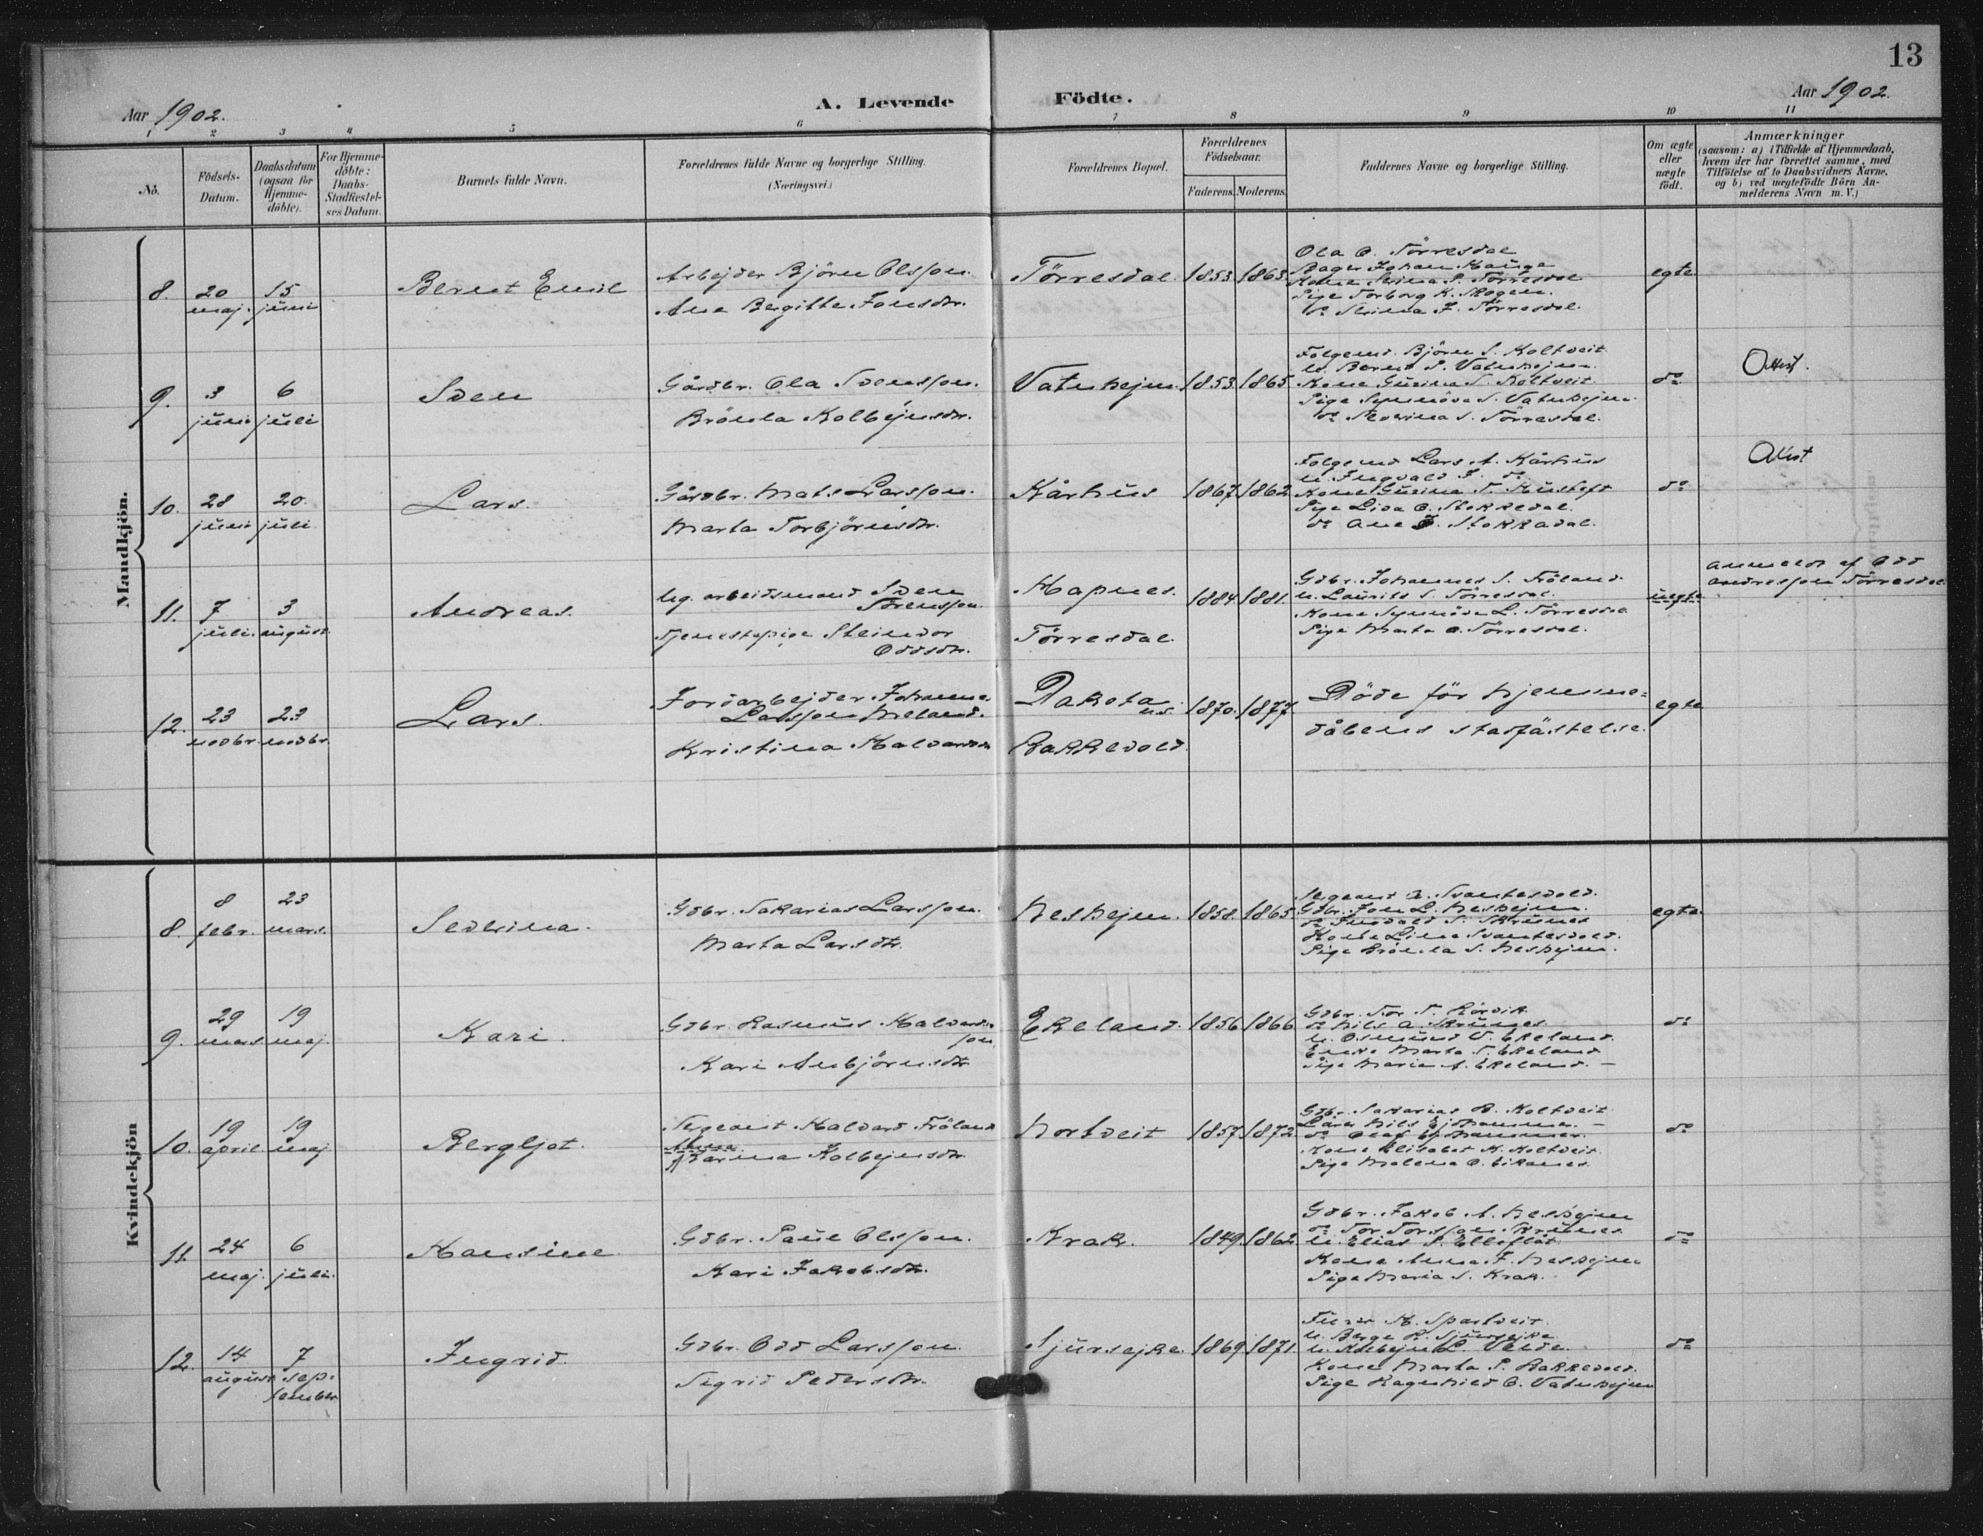 13
Aar 1902.
A. Levende Födte.
Aar 1902.
1 2 3 4 5 6 7 8 9 10 11
No.
Födsels-Datum.
Daabsdatum (ogsaa för Hjemmedöbte).
For Hjemmedöbte: Daabs-Stadfæstelses Datum.
Barnets fulde Navn.
Forældrenes fulde Navne og borgerlige Stilling.
(Næringsvei.)
Forældrenes Bopæl.
Forældrenes Födselsaar.
Faderens. Moderens.
Faddernes Navne og borgerlige Stilling.
Om ægte eller uægte födt.
Anmærkninger
(saasom: a) i Tilfælde af Hjemmedaab, hvem der har forrettet samme, med Tilföielse af to Daabsvidners Navne, og b) ved uægtefödte Börn Anmelderens Navn m. V.)
Mandkjön.
8. 20 maj. 15 juni
Bernt Emil
Arbejder Björn Olsson.
Ane Bergitte Jonsdtr.
Törresdal. 1853. 1863.
Ola O. Törresdal
Bager Johan Hauga
Kone Stina P. Törresdal
Pige Torborg K. Skogen.
do Stina J. Törresdal.
egte
9. 3 juni 6 juli
Sven
Gårdbr. Ola Svensson.
Brönla Kolbejnsdtr.
Vatshejm. 1853. 1865.
Folgemd. Björn S. Koltveit
U. Bernt S. Vatshejm.
Kone Gurina S. Koltveit
Pige Synnöve S. Vatshejm.
do Severina S. Törresdal.
do
Attest.
10. 28 juni 20. juli
Lars.
Gårdbr. Mats Larsson.
Marta Torbjörnsdtr.
Kårhus 1867. 1862
Folgemd Lars A. Kårhus
U. Ingvald J. do
Pige Lisa O. Stokkedal.
do Ane J. Stokkadal.
do
Attest
11. 7 juli. 3 august
Andreas.
Ug. arbeidsmand Sven Törensson.
Tjenestepige Steindor Oddsdtr.
Hapnes.
Törresdal.
1884. 1881.
Gdbr. Johannes S. Fröland.
U. Laurits S. Törresdal.
Kone Synnöve L. Törresdal
Pige Marta O. Törresdal.
uegte
anmeldt af Odd Andresson Törresdal.
12. 23 novbr. 23 novbr.
Lars.
Jordarbejder Johannes Larsson Meland.
Kristina Halvardsdtr
Dakota
Bakkevold.
1870. 1877.
Döde för hjemmedåbens stadfästelse.
egte
Kvindekjön
8. 8 febr. 23 mars.
Severina.
Gdbr. Sakarias Larsson.
Marta Larsdtr.
Neshejm. 1858. 1865.
Gdbr. Jon L. Neshejm.
do Ingvald S. Skrunes
Kone Lina Svantesvold.
Pige Brönla S. Neshejm.
egte
9. 29 mars 19 maj.
Kari.
Gdbr. Rasmus Halvardsson
Kari Anbjörnsdtr
Ekeland. 1856. 1866.
Gdbr. Tor T. Rörvik
do Nils A. Skrunes
U. Osmund V. Ekeland.
Enke Marta T. Ekeland
Pige Maria A. Ekeland. —
do
10. 19 april 19 maj
Bergljot.
Sergeant Halvard Fröland
Anna Karina Kolbejnsdtr.
Nortveit 1857. 1872.
Gdbr. Sakarias B. Koltveit
Kone Elisabet K. Koltveit.
Pige Malena O. Eikanes.
do
11. 24 maj. 6 juli.
Hansine
Gdbr. Paul Olsson.
Kari Jakobsdtr.
Krak. 1849. 1862.
Gdbr. Jakob A. Neshejm
do Tor Torsson Skrunes
U. Elias P. Elleflåt
Kone Anna F. Neshejm
Pige Maria S. Krak.
do
12. 14 august 7 september
Ingrid.
Gdbr. Odd Larsson.
Sigrid Pedersdtr.
Sjursejke. 1869. 1871.
U. Berge R. Sjursejke
U. Kolbejn L. Valda.
Kone Marta P. Bakkevold.
Pige Ragnhild O. Vatshejm
do